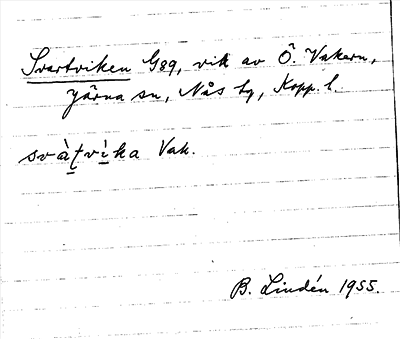 Svartviken G89, vik av Ö. Vakern,
Järna sn, Nås tg, Kopp. l.
svàtvìka Vak.
B. Lindén 1955.